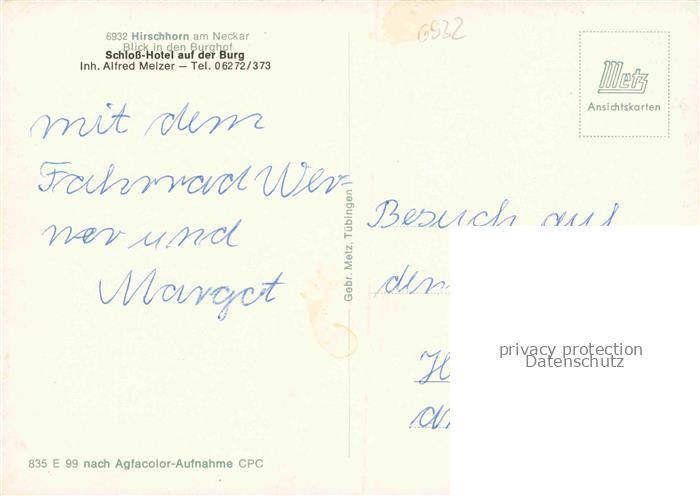 6932 Hirschhorn am Neckar
Blick in den Burghof
Schloß-Hotel auf der Burg
Inh. Alfred Melzer — Tel. 06272/373
mit dem
Fahrrad Wer-
ner und
Margot
835 E 99 nach Agfacolor-Aufnahme CPC
Gebr. Metz, Tübingen
6932
Metz
Ansichtskarten
Besuch auf
dem
privacy protection
Datenschutz